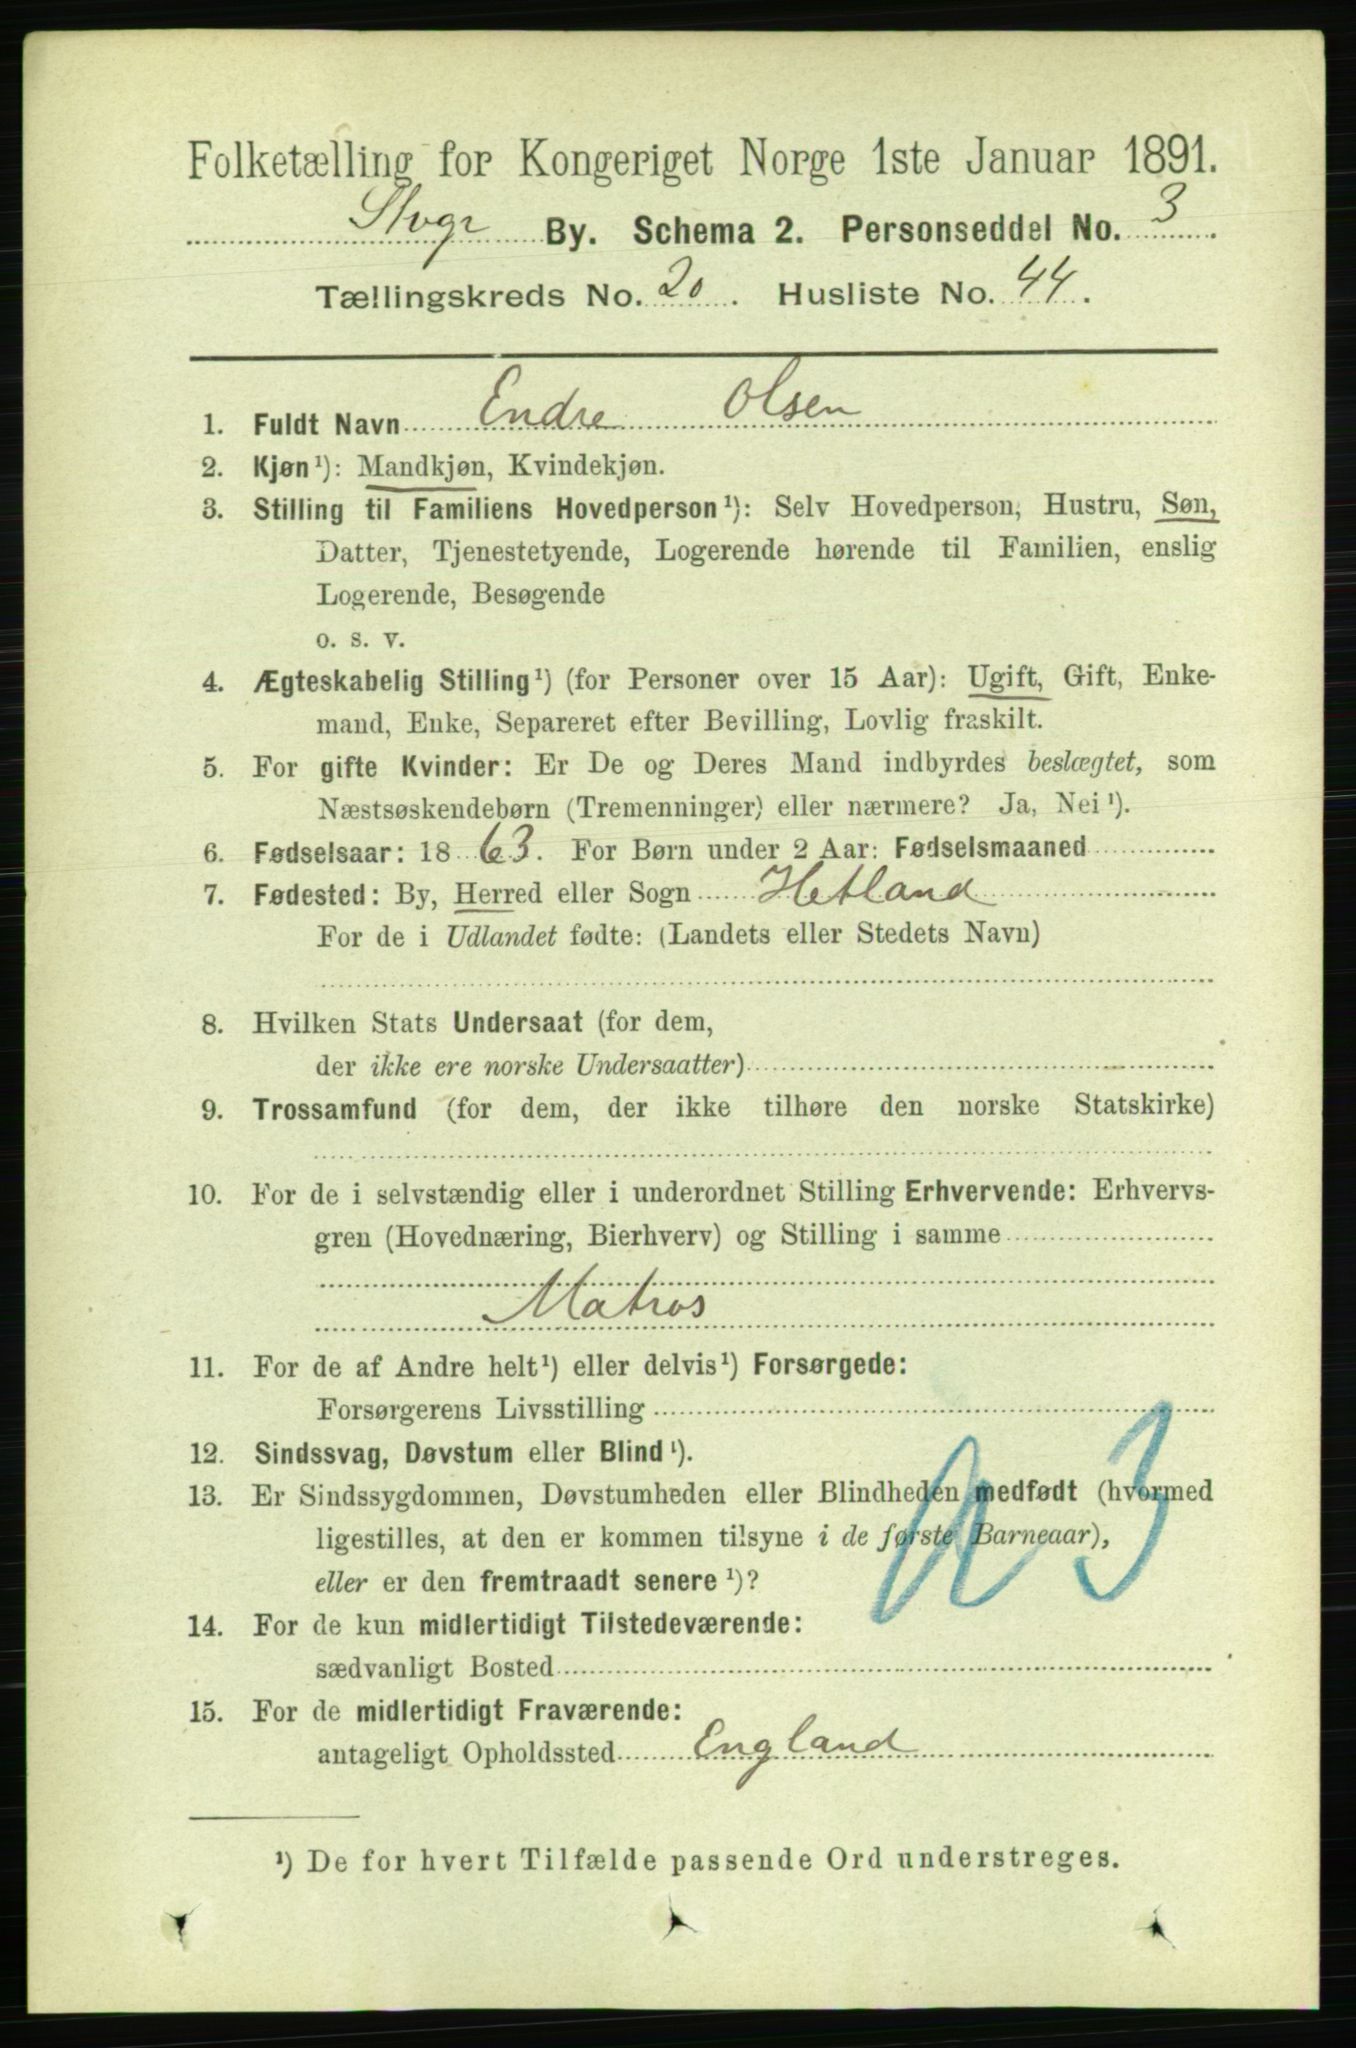 Folketælling for Kongeriget Norge 1ste Januar 1891.
Stvgr By. Schema 2. Personseddel No. 3.
Tællingskreds No. 20. Husliste No. 44.
1. Fuldt Navn Endre Olsen
2. Kjøn¹): Mandkjøn, Kvindekjøn.
3. Stilling til Familiens Hovedperson¹): Selv Hovedperson, Hustru, Søn,
Datter, Tjenestetyende, Logerende hørende til Familien, enslig
Logerende, Besøgende
o. s. v.
4. Ægteskabelig Stilling¹) (for Personer over 15 Aar): Ugift, Gift, Enke-
mand, Enke, Separeret efter Bevilling, Lovlig fraskilt.
5. For gifte Kvinder: Er De og Deres Mand indbyrdes beslægtet, som
Næstsøskendebørn (Tremenninger) eller nærmere? Ja, Nei¹).
6. Fødselsaar: 1863. For Børn under 2 Aar: Fødselsmaaned
7. Fødested: By, Herred eller Sogn Hetland
For de i Udlandet fødte: (Landets eller Stedets Navn)
8. Hvilken Stats Undersaat (for dem,
der ikke ere norske Undersaatter)
9. Trossamfund (for dem, der ikke tilhøre den norske Statskirke)
10. For de i selvstændig eller i underordnet Stilling Erhvervende: Erhvervs-
gren (Hovednæring, Bierhverv) og Stilling i samme
Matros
11. For de af Andre helt¹) eller delvis¹) Forsørgede:
Forsørgerens Livsstilling
12. Sindssvag, Døvstum eller Blind¹).
13. Er Sindssygdommen, Døvstumheden eller Blindheden medfødt (hvormed
ligestilles, at den er kommen tilsyne i de første Barneaar),
eller er den fremtraadt senere¹)?
14. For de kun midlertidigt Tilstedeværende:
sædvanligt Bosted
15. For de midlertidigt Fraværende:
antageligt Opholdssted England
¹) De for hvert Tilfælde passende Ord understreges.